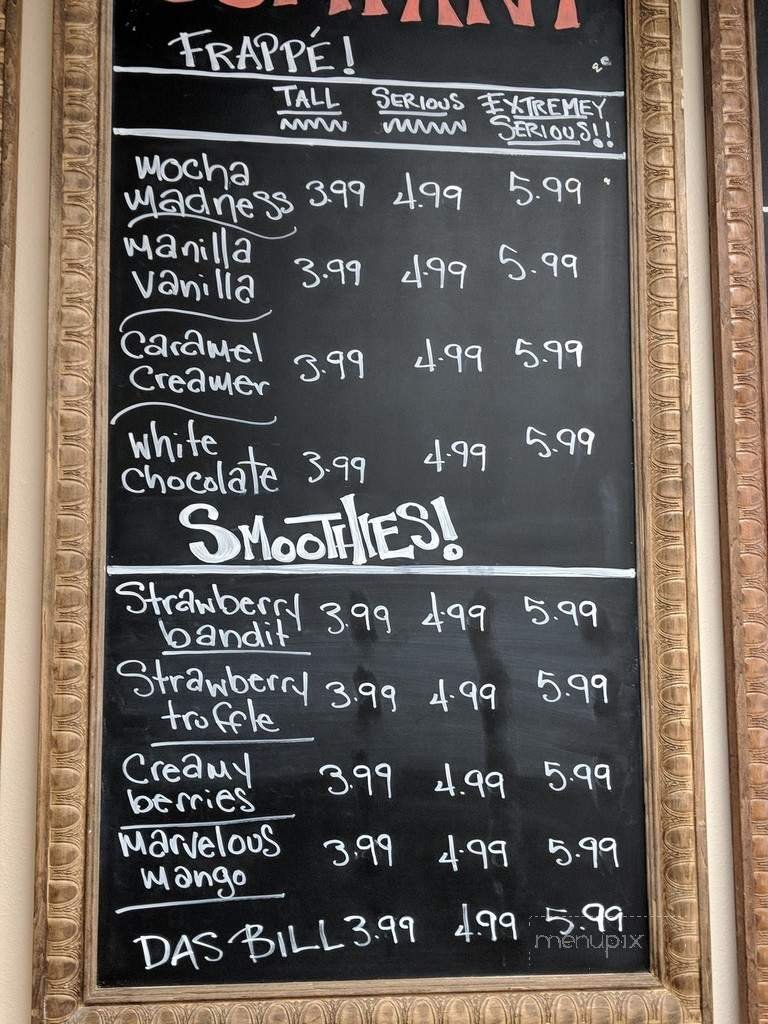 COMPANY
FRAPPÉ!
TALL SERIOUS EXTREMEY
SERIOUS!!
Mocha
Madness 3.99 4.99 5.99
Manilla
Vanilla 3.99 4.99 5.99
Caramel
Creamer 3.99 4.99 5.99
White
Chocolate 3.99 4.99 5.99
SMOOTHIES!
Strawberry
bandit 3.99 4.99 5.99
Strawberry
truffle 3.99 4.99 5.99
Creamy
berries 3.99 4.99 5.99
Marvelous
Mango 3.99 4.99 5.99
DAS BILL 3.99 4.99 5.99
menupix